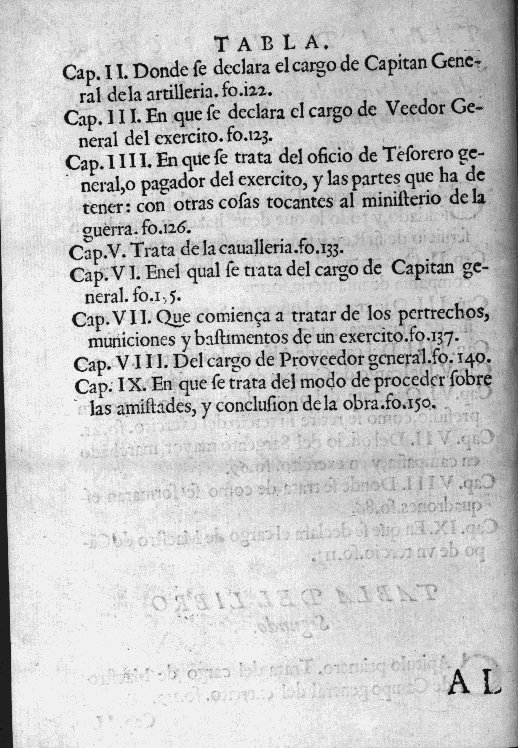 TABLA.
Cap. II. Donde ſe declara el cargo de Capitan Gene-
ral dela artilleria. fo.122.
Cap. III. En que ſe declara el cargo de Veedor Ge-
neral del exercito. fo.123.
Cap. IIII. En que ſe trata del oficio de Teſorero ge-
neral,o pagador del exercito, y las partes que ha de
tener: con otras coſas tocantes al miniſterio de la
guerra. fo.126.
Cap.V. Trata de la caualleria.fo.133.
Cap. VI. Enel qual ſe trata del cargo de Capitan ge-
neral.
Cap. VII. Que comiença a tratar de los pertrechos,
municiones y baſtimentos de un exercito.fo.137.
Cap. VIII. Del cargo de Proveedor general.fo. 140.
Cap. IX. En que ſe trata del modo de proceder ſobre
las amiſtades, y concluſion de la obra.fo.150.
AL